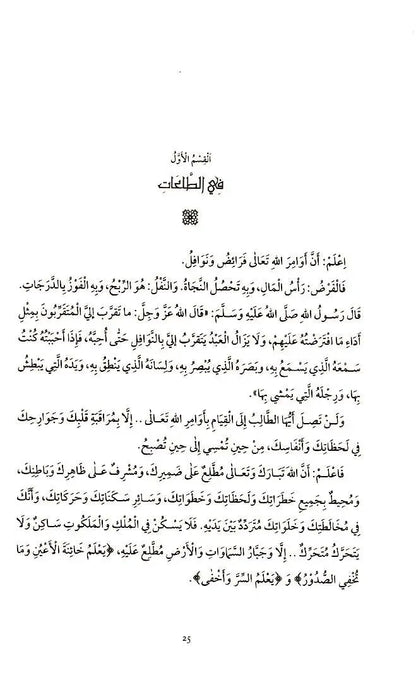 اَلْقِسْمُ الْأَوَّلُ
فِي الطَّاعَاتِ
اِعْلَمْ: أَنَّ أَوَامِرَ اللهِ تَعَالَى فَرَائِضُ وَنَوَافِلُ.
فَالْفَرْضُ: رَأْسُ الْمَالِ، وَبِهِ تَحْصُلُ النَّجَاةُ. وَالنَّفْلُ: هُوَ الرِّبْحُ، وَبِهِ الْفَوْزُ بِالدَّرَجَاتِ.
قَالَ رَسُولُ اللهِ صَلَّى اللهُ عَلَيْهِ وَسَلَّمَ: «قَالَ اللهُ عَزَّ وَجَلَّ: مَا تَقَرَّبَ إِلَيَّ الْمُتَقَرِّبُونَ بِمِثْلِ
أَدَاءِ مَا افْتَرَضْتُهُ عَلَيْهِمْ، وَلَا يَزَالُ الْعَبْدُ يَتَقَرَّبُ إِلَيَّ بِالنَّوَافِلِ حَتَّى أُحِبَّهُ، فَإِذَا أَحْبَبْتُهُ كُنْتُ
سَمْعَهُ الَّذِي يَسْمَعُ بِهِ، وَبَصَرَهُ الَّذِي يُبْصِرُ بِهِ، وَلِسَانَهُ الَّذِي يَنْطِقُ بِهِ، وَيَدَهُ الَّتِي يَبْطِشُ
بِهَا، وَرِجْلَهُ الَّتِي يَمْشِي بِهَا».
وَلَنْ تَصِلَ أَيُّهَا الطَّالِبُ إِلَى الْقِيَامِ بِأَوَامِرِ اللهِ تَعَالَى .. إِلَّا بِمُرَاقَبَةِ قَلْبِكَ وَجَوَارِحِكَ
فِي لَحَظَاتِكَ وَأَنْفَاسِكَ، مِنْ حِينِ تُمْسِي إِلَى حِينِ تُصْبِحُ.
فَاعْلَمْ: أَنَّ اللهَ تَبَارَكَ وَتَعَالَى مُطَّلِعٌ عَلَى ضَمِيرِكَ، وَمُشْرِفٌ عَلَى ظَاهِرِكَ وَبَاطِنِكَ،
وَمُحِيطٌ بِجَمِيعِ خَطَرَاتِكَ وَلَحَظَاتِكَ وَخَطَوَاتِكَ، وَسَائِرِ سَكَنَاتِكَ وَحَرَكَاتِكَ، وَأَنَّكَ
فِي مُخَالَطَتِكَ وَخَلَوَاتِكَ مُتَرَدِّدٌ بَيْنَ يَدَيْهِ. فَلَا يَسْكُنُ فِي الْمُلْكِ وَالْمَلَكُوتِ سَاكِنٌ وَلَا
يَتَحَرَّكُ مُتَحَرِّكٌ .. إِلَّا وَجَبَّارُ السَّمَاوَاتِ وَالْأَرْضِ مُطَّلِعٌ عَلَيْهِ، ﴿يَعْلَمُ خَائِنَةَ الْأَعْيُنِ وَمَا
تُخْفِي الصُّدُورُ﴾ وَ ﴿يَعْلَمُ السِّرَّ وَأَخْفَى﴾.
25